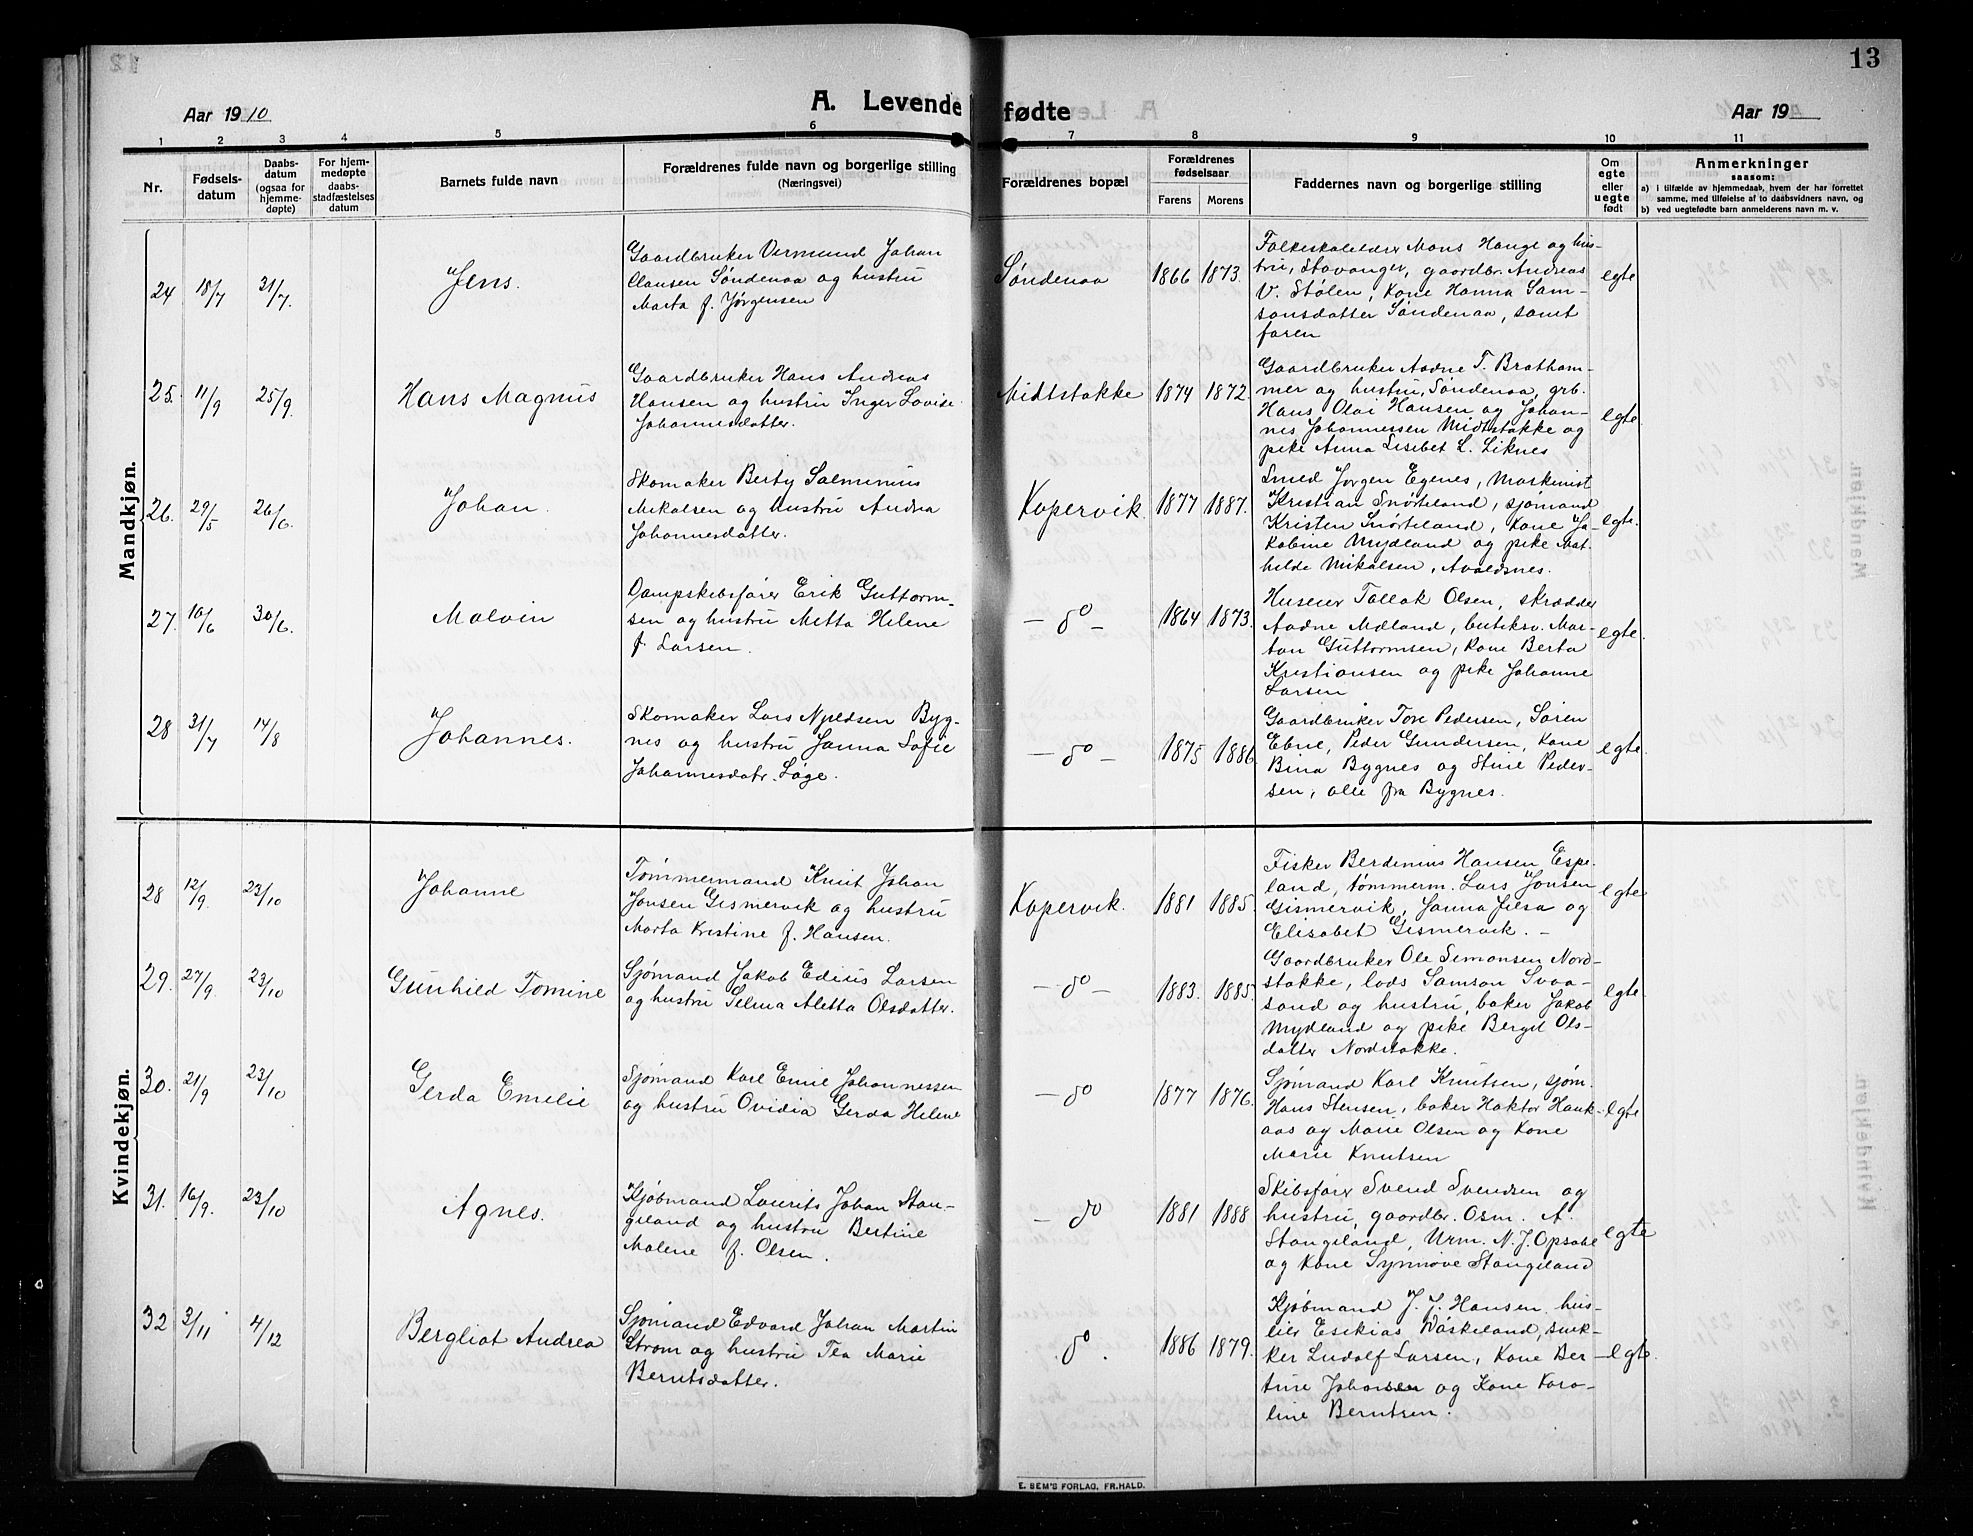 13
Aar 1910
A. Levende fødte
Aar 19
1 2 3 4 5 6 7 8 9 10 11
Nr.
Fødsels-
datum
Daabs-
datum
(ogsaa for
hjemme-
døpte)
For hjem-
medøpte
daabs-
stadfæstelses
datum
Barnets fulde navn
Forældrenes fulde navn og borgerlige stilling
(Næringsvei)
Forældrenes bopæl
Forældrenes
fødselsaar
Farens Morens
Faddernes navn og borgerlige stilling
Om
egte
eller
uegte
født
Anmerkninger
saasom:
a) i tilfælde av hjemmedaab, hvem der har forrettet
samme, med tilføielse af to daabsvidners navn, og
b) ved uegtefødte barn anmelderens navn m. v.
Mandkjøn.
24 18/7 31/7. Jens.
Gaardbruker Vermund Johan
Clausen Søndenaa og hustru
Marta f. Jørgensen
Søndenaa 1866 1873.
Folkeskolelærer Mons Hauge og hus-
tru, Stavanger, gaardbr. Andreas
V. Stølen, Kone Hanna Sam-
sonsdatter Søndenaa, samt
faren
egte
25. 11/9 25/9. Hans Magnus
Gaardbruker Hans Andreas
Hansen og hustru Inger Lovise
Johannesdatter.
Midtstokke 1874 1872.
Gaardbruker Aadne T. Bratham-
mer og hustru, Søndenaa, grb.
Hans Olai Hansen og Johan-
nes Johannessen Midtstokke og
pike Anna Lisebet L. Liknes
egte
26. 29/5 26/6. Johan.
Skomaker Berty Salminius
Mikalsen og hustru Andrea
Johannesdatter.
Kopervik 1877 1887.
Smed Jørgen Egenes, Maskinist
Kristian Snørteland, sjømand
Kristen Snørteland, Kone Ja-
kobine Mydland og pike Mat-
hilde Mikalsen, Avaldsnes.
egte.
27. 10/6 30/6. Malvin
Dampskibsfører Erik Guttorm-
sen og hustru Metta Helene
f. Larsen.
- do - 1864 1873.
Huseier Tollak Olsen, skrædder
Aadne Mæland, butiksv. Mar-
ton Guttormsen, Kone Berta
Kristiansen og pike Johanne
Larsen
egte.
28 31/7 14/8 Johannes.
Skomaker Lars Nyldsen Byg-
nes og hustru Janna Sofie
Johannesdatr. Løge.
- do - 1875 1886
Gaardbruker Tore Pedersen, Søren
Ebne, Peder Gundersen, Kone
Bina Bygnes og Stine Peder-
sen, alle fra Bygnes.
egte.
Kvindekjøn.
28 12/9. 23/10 Johanne
Tømmermand Knut Johan
Jonsen Gismervik og hustru
Marta Kristine f. Hansen.
Kopervik. 1881 1885.
Fisker Berdinius Hansen Espe-
land, tømmerm. Lars Jonsen
Gismervik, Janna Jilsa og
Elisabet Gismervik. -
egte
29. 27/9. 23/10 Gunhild Tomine
Sjømand Jakob Edius Larsen
og hustru Selma Aletta Olsdatter.
- do - 1883. 1885.
Gaardbruker Ole Simonsen Nord-
stokke, lods Samson Svaa-
sand og hustru, baker Jakob
Mydland og pike Bergit Ols-
datter Nordstokke.
egte
30. 21/9 23/10 Gerda Emelie
Sjømand Karl Emil Johannessen
og hustru Ovidia Gerda Helene
- do 1877 1876.
Sjømand Karl Knutsen, sjøm.
Hans Stensen, baker Haktor Hauk-
aas og Marie Olsen og Kone
Marie Knutsen
egte
31. 16/9. 23/10 Agnes.
Kjøbmand Laurits Johan Stan-
geland og hustru Bertine
Malene f. Olsen.
- do 1881 1888
Skibsfører Svend Svendsen og
hustru, gaardbr. Osm. A.
Stangeland, Urm. N. J. Opsahl
og Kone Synnøve Stangeland
egte
32 3/11 4/12 Bergliot Andrea
Sjømand Edvard Johan Martin
Strøm og hustru Tea Marie
Berntsdatter.
do. 1886 1879.
Kjøbmand J. J. Hansen, hus-
eier Esekias Våskeland, snek-
ker Ludolf Larsen, Kone Ber-
tine Johansen og Kone Karo-
line Berntsen.
egte.
E. SEM'S FORLAG, FR.HALD.